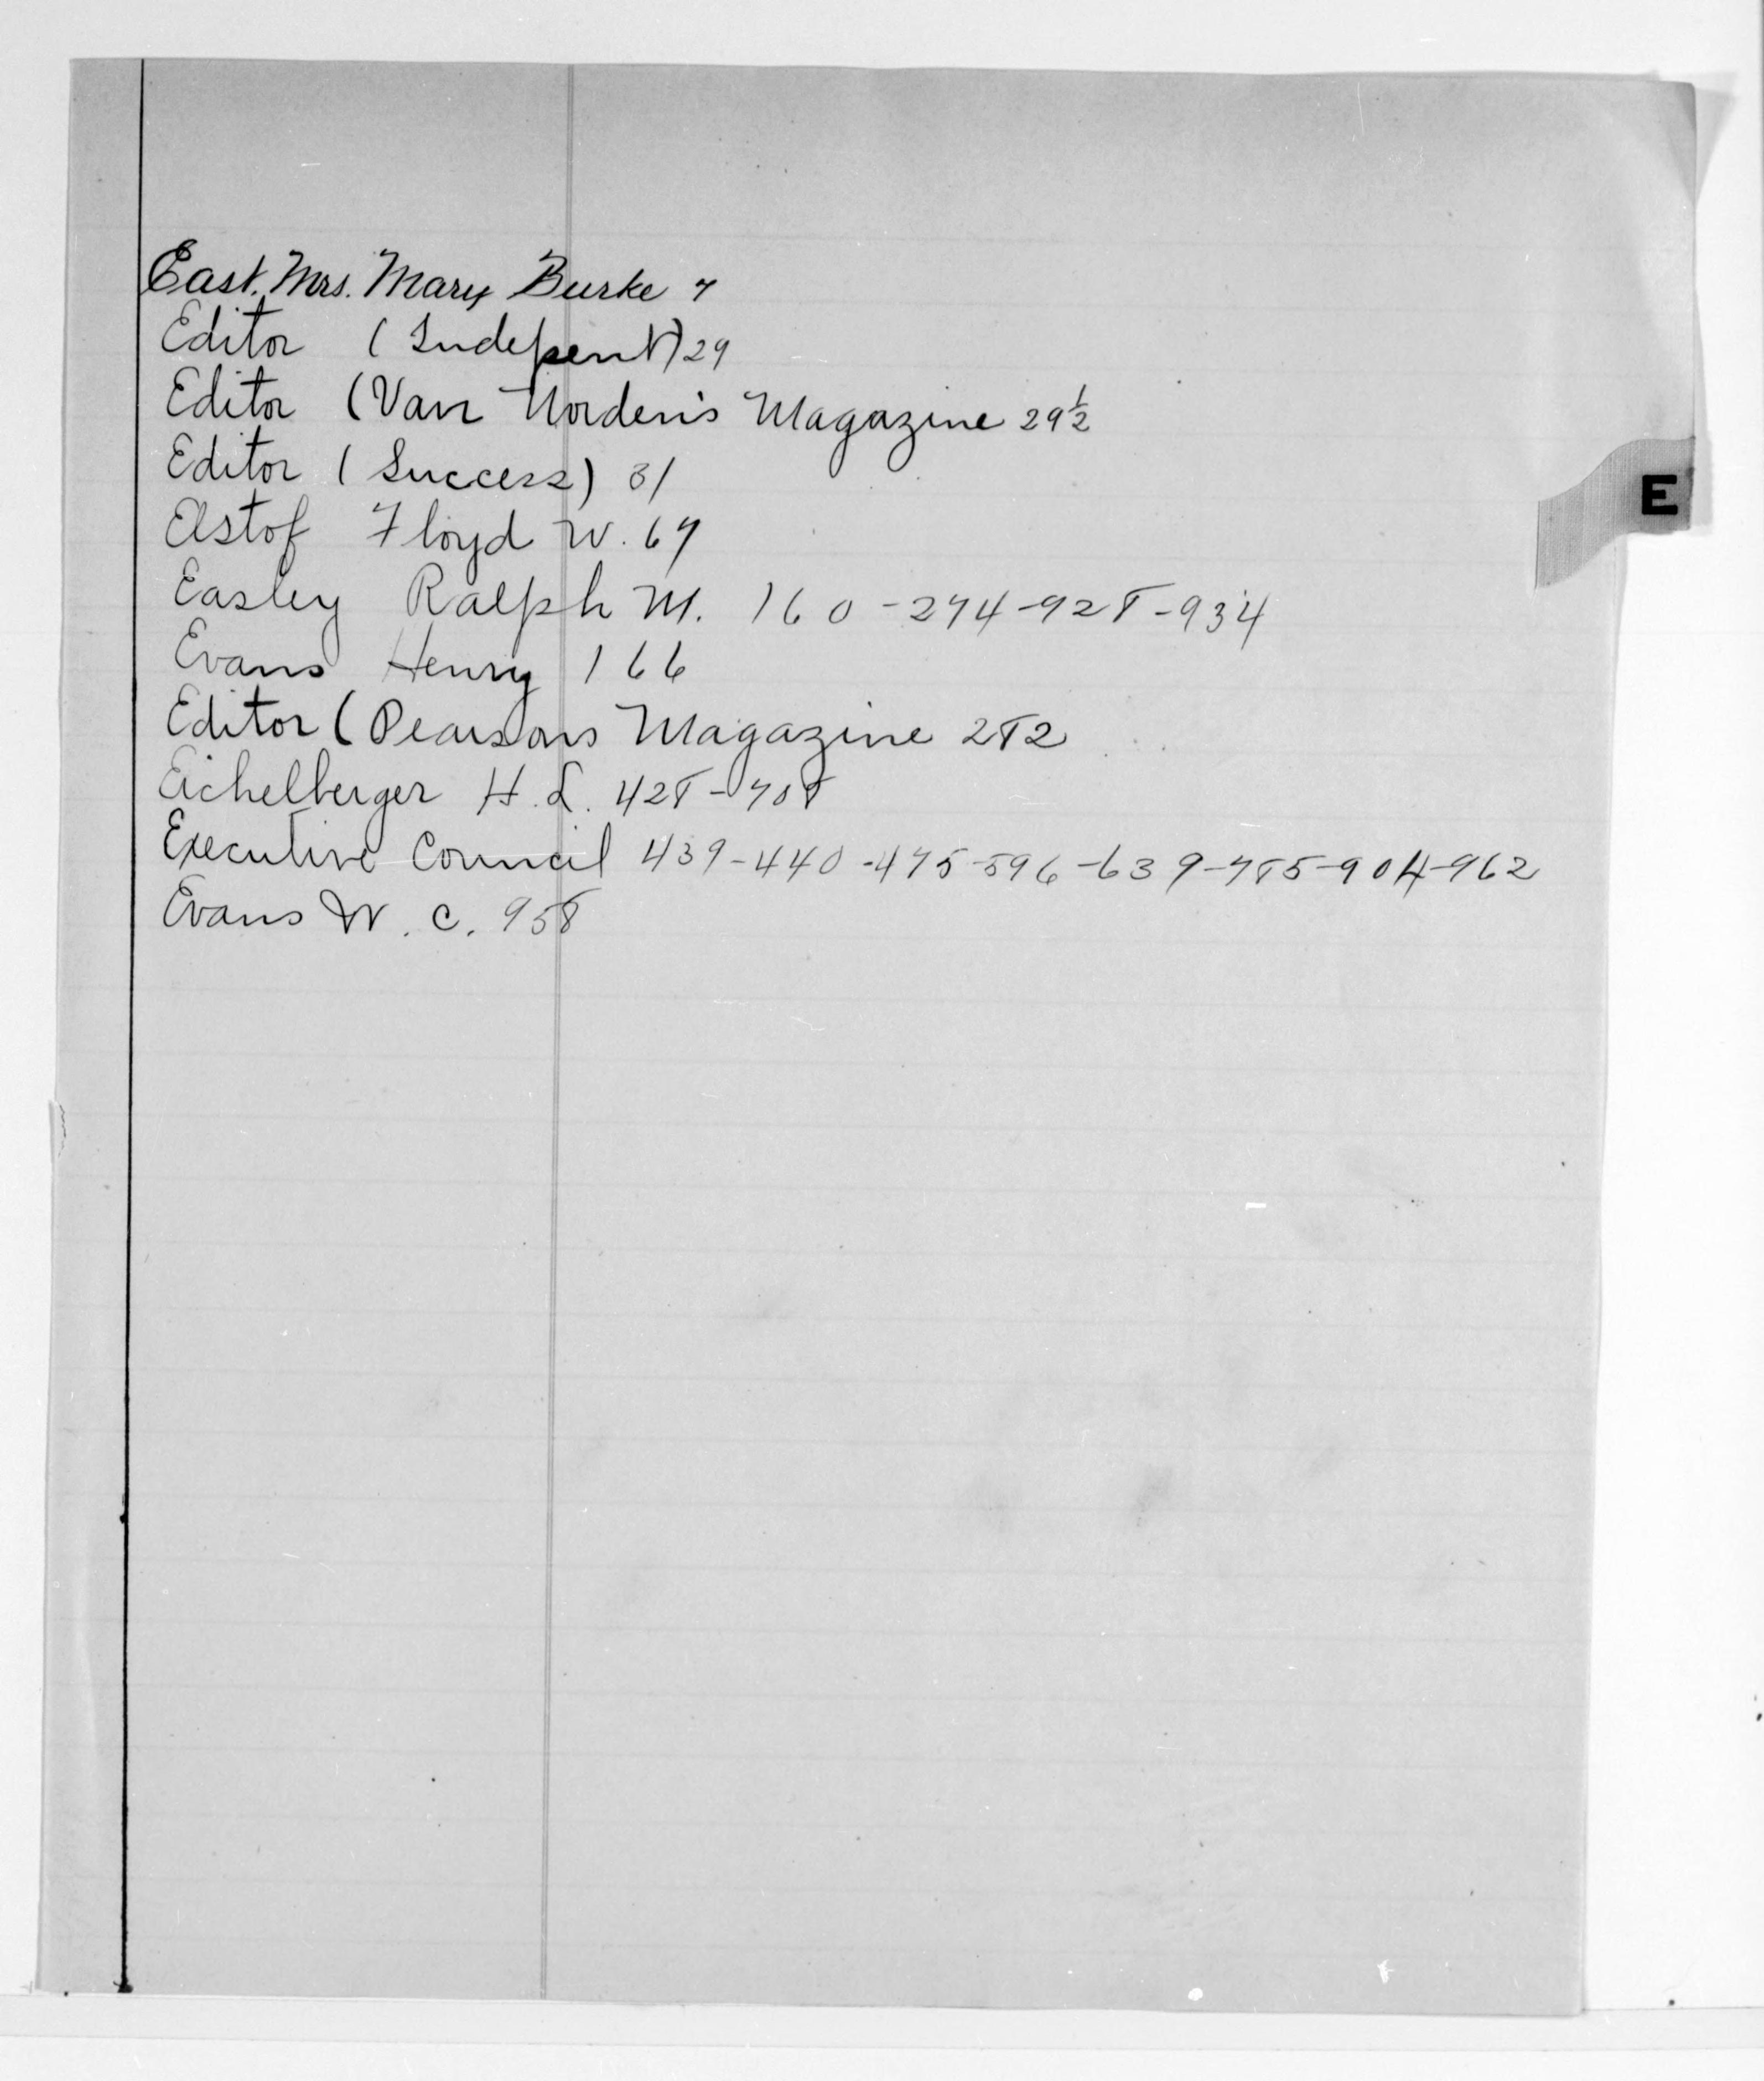 East, Mrs. Mary Burke 7
Editor (Indepent) 29
Editor (Van Norden's Magazine 29½
Editor (Success) 31
E
Elstof Floyd W. 67
Easley Ralph M. 160-274-928-934
Evans Henry 166
Editor (Pearsons Magazine 282
Eichelberger H. L. 428-708
Executive Council 439-440-475-596-639-785-904-962
Evans W. C. 958